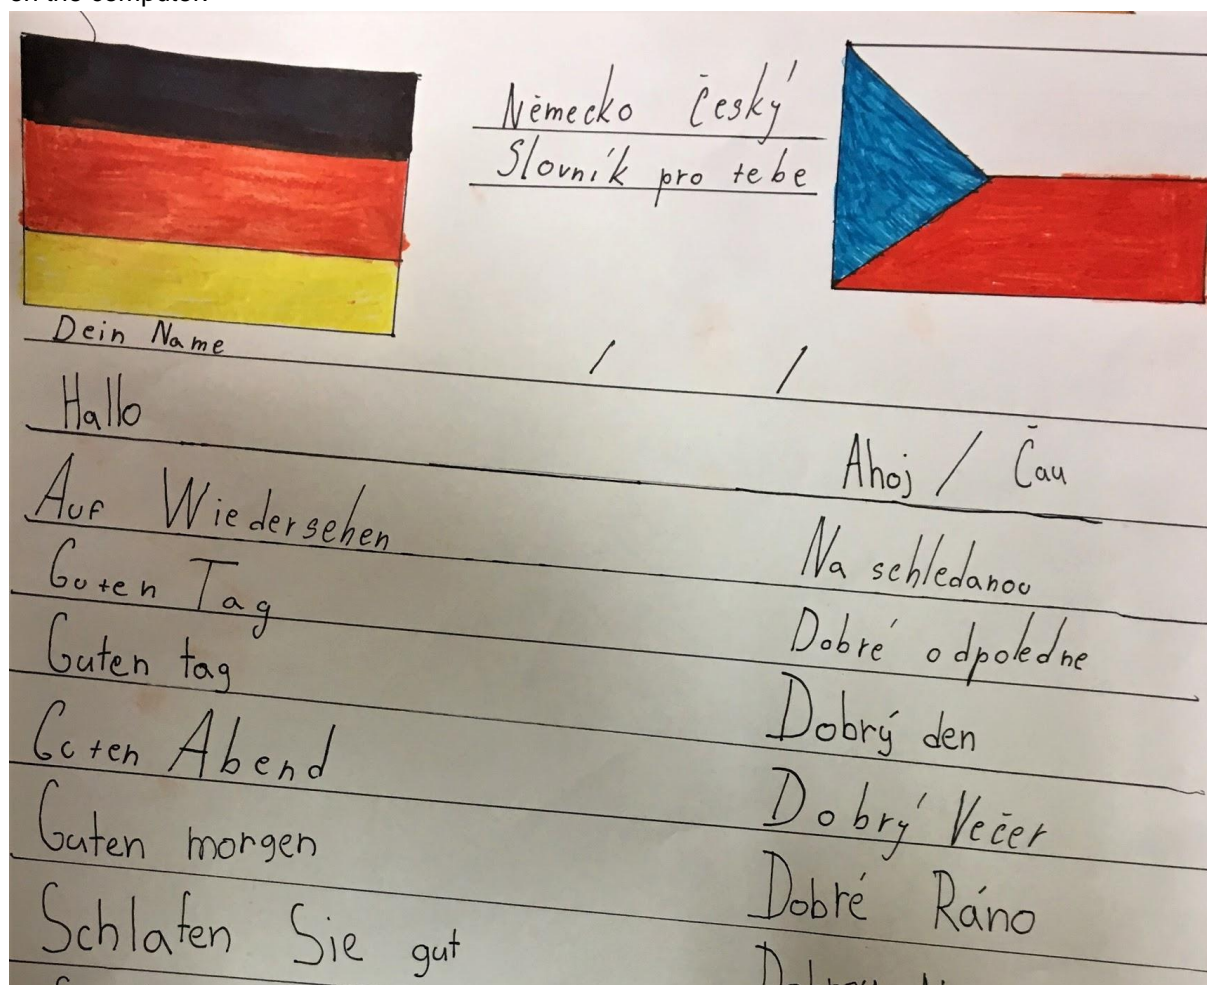 Německo Český
Slovník pro tebe
Dein Name / /
Hallo Ahoj / Čau
Auf Wiedersehen Na schledanou
Guten Tag Dobré odpoledne
Guten tag Dobrý den
Guten Abend Dobrý Večer
Guten morgen Dobré Ráno
Schlafen Sie gut